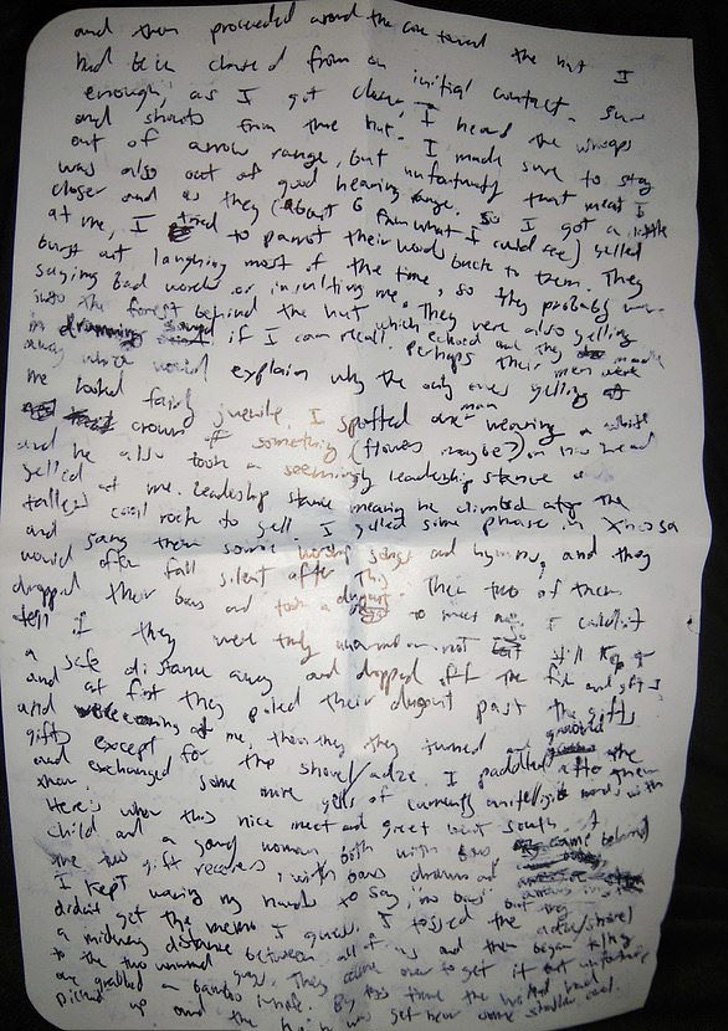 and then proceeded around the cove toward the hut I
had been chased from on initial contact. Sure
enough, as I got closer, I heard the whoops
and shouts from the hut. I made sure to stay
out of arrow range, but unfortunately that meant I
was also out of good hearing range. So I got a little
closer and as they (about 6 from what I could see) yelled
at me, I tried to parrot their words back to them. They
burst out laughing most of the time, so they probably were
saying bad words or insulting me. They were also yelling
into the forest behind the hut which echoed and they made
in if I can recall. Perhaps their men were
away which would explain why the only ones yelling at
me looked fairly juvenile. I spotted one man wearing a white
crown of something (flowers maybe?) on his head
and he also took a seemingly leadership stance &
yelled at me. leadership stance meaning he climbed atop the
tallest coral rock to yell. I yelled some phrases in Xhosa
and sang them some worship songs and hymns, and they
would often fall silent after this. Then two of them
dropped their bows and took a dugout to meet me. I couldn't
tell if they were truly unarmed or not so I still kept
a safe distance away and dropped off the fish and gifts
and at first they poled their dugout past the gifts
and at me, then they turned and grabbed
gifts except for the shovel/adze. I paddled after them
and exchanged some more yells of currently unintelligible words with
them.
Here's when this nice meet and greet went south. A
child and a young woman, both with bows, came behind
the two gift receivers, with bows drawn
I kept waving my hands to say "no bows" but they
didn't get the memo I guess. I tossed the adze/shovel
a midway distance between all of us and then began talking
to the two unarmed guys. They came over to get it but unfortunately
one grabbed a bamboo knife. By this time the
picked up and the